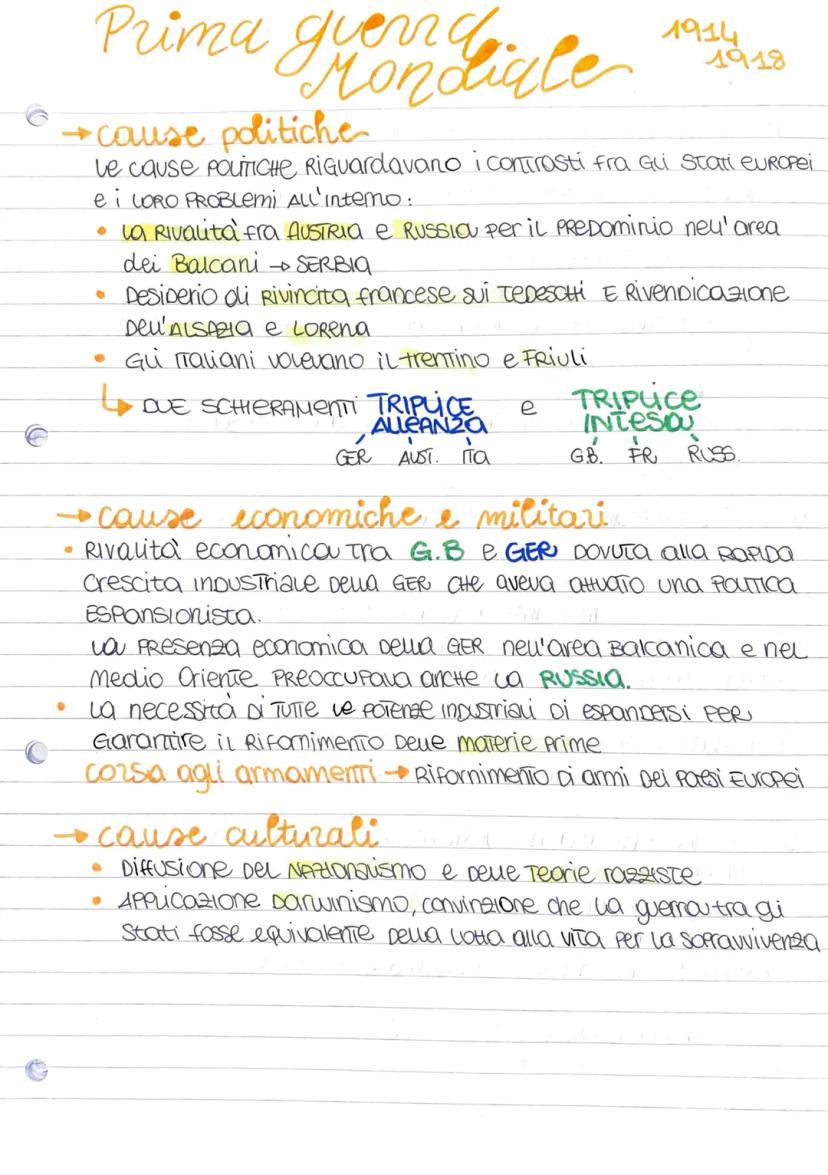 Prima guerra
Mondiale
1914
1918
→ cause politiche
Le cause POLITICHE RIGUARDAVANO i contrasti fra Gli Stati EUROPEI
e i LORO PROBLEMI ALL'interno:
• La Rivalità fra AUSTRIA e RUSSIA per il PREDOMINIO nell'area
dei Balcani → SERBIA
• Desiderio di Rivincita francese sui TEDESCHI E RIVENDICAZIONE
Dell'ALSAZIA e LORENA
• Gli ITALIANI VOLEVANO il trentino e FRIULI
↳ DUE SCHIERAMENTI TRIPLICE e TRIPLICE
ALLEANZA INTESA
GER AUST. ITA G.B. FR RUSS.
→ cause economiche e militari
• RIVALITÀ economica TRA G.B e GER DOVUTA alla RAPIDA
Crescita INDUSTRIALE DELLA GER CHE aveva attuato una POLITICA
ESPANSIONISTA.
La PRESENZA economica DELLA GER nell'area Balcanica e nel
Medio Oriente PREOCCUPAVA anche La RUSSIA.
• La necessità DI TUTTE le POTENZE INDUSTRIALI DI espandersi PER
Garantire il Rifornimento Delle materie prime
corsa agli armamenti → Rifornimento Di armi Dei Paesi Europei
→ cause culturali
• Diffusione Del NAZIONALISMO e Delle Teorie razziste
• APPLICAZIONE Darwinismo, convinzione che La guerra tra gi
Stati fosse equivalente Della Lotta alla vita per La Sopravvivenza